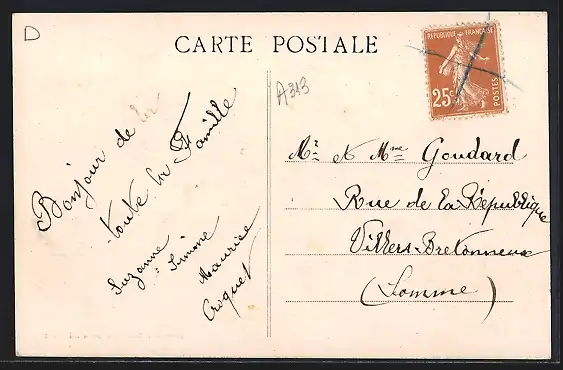 D
CARTE POSTALE
REPUBLIQUE FRANÇAISE
25c
POSTES
A313
Bonjour de la
toute la Famille
Suzanne Simone
Maurice
Croquet
Mr et Mme Goudard
Rue de la République
Villers-Bretonneux
(Somme)